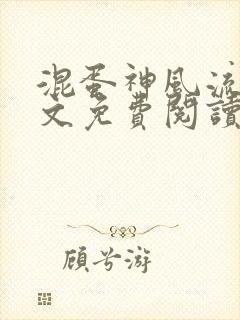 混蛋神風流
文免費閱讀
顧兮游